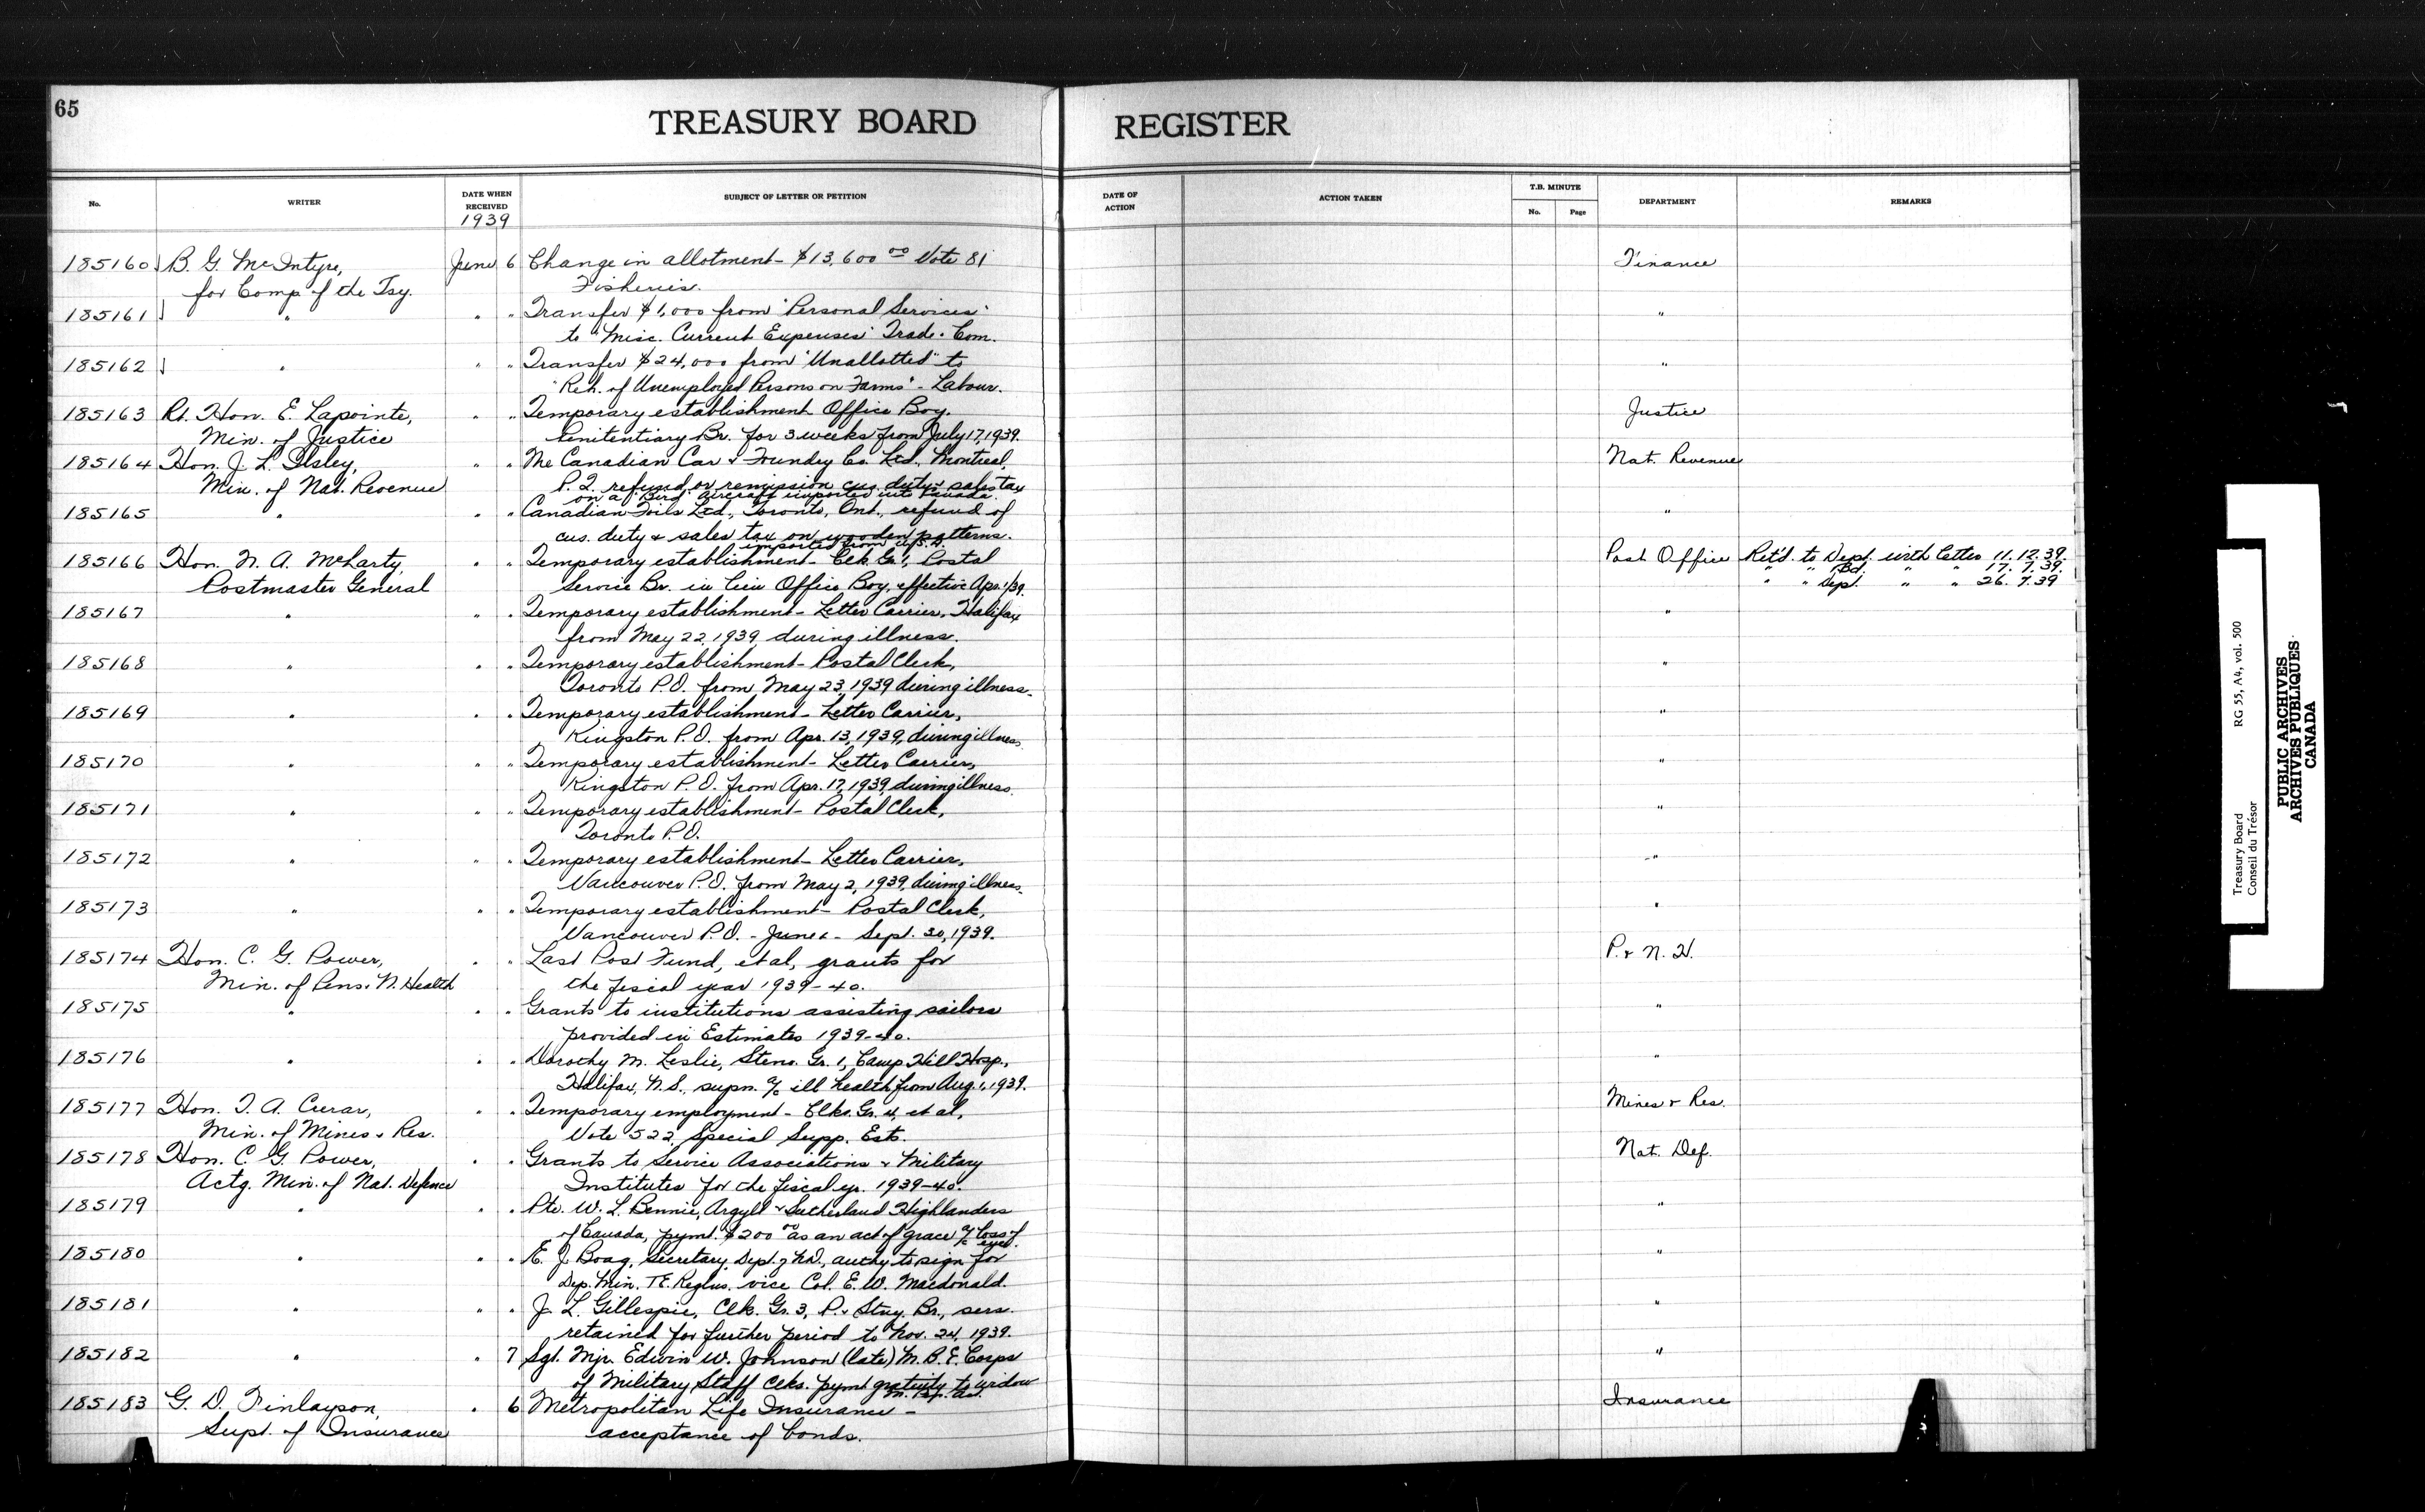 65
TREASURY BOARD REGISTER
No. WRITER DATE WHEN RECEIVED SUBJECT OF LETTER OR PETITION DATE OF ACTION ACTION TAKEN T.B. MINUTE No. Page DEPARTMENT REMARKS
1939
185160 B. G. McIntyre, June 6 Change in allotment - $13,600 00 Vote 81 Finance
for Comp of the Tsy. Fisheries.
185161 " " " Transfer $1,000 from "Personal Services" "
to "Misc. Current Expenses" Trade & Com.
185162 " " " Transfer $24,000 from "Unallotted" to "
"Reh. of Unemployed Persons on Farms" - Labour.
185163 Rt. Hon. E. Lapointe, " " Temporary establishment Office Boy. Justice
Min. of Justice Penitentiary Br. for 3 weeks from July 17, 1939.
185164 Hon. J. L. Ilsley, " " The Canadian Car & Foundry Co. Ltd., Montreal, Nat. Revenue
Min. of Nat. Revenue P.Q. refund or remission cus. duty & sales tax
on a "Bird" aircraft imported into Canada.
185165 " " " Canadian Foils Ltd., Toronto, Ont., refund of "
cus. duty & sales tax on wooden patterns.
imported from U.S.A.
185166 Hon. N. A. McLarty, " " Temporary establishment - Clk. Gr. 1, Postal Post Office Ret'd. to Dept. with letter 11.12.39.
Postmaster General Service Br. in lieu Office Boy, effective Apr. 1/39.
" " Bd. " " 17.7.39.
" " Dept. " " 26.7.39
185167 " " " Temporary establishment - Letter Carrier, Halifax "
from May 22, 1939, during illness.
185168 " " " Temporary establishment - Postal Clerk, "
Toronto P.O. from May 23, 1939 during illness.
185169 " " " Temporary establishment - Letter Carrier, "
Kingston P.O. from Apr. 13, 1939, during illness.
185170 " " " Temporary establishment - Letter Carrier, "
Kingston P.O. from Apr. 17, 1939, during illness.
185171 " " " Temporary establishment - Postal Clerk, "
Toronto P.O.
185172 " " " Temporary establishment - Letter Carrier, "
Vancouver P.O. from May 2, 1939, during illness.
185173 " " " Temporary establishment - Postal Clerk, "
Vancouver P.O. - June - Sept. 30, 1939.
185174 Hon. C. G. Power, " " Last Post Fund, et al, grants for P. & N. H.
Min. of Pens. & N. Health the fiscal year 1939-40.
185175 " " " Grants to institutions assisting sailors "
provided in Estimates 1939-40.
185176 " " " Dorothy M. Leslie, Steno. Gr. 1, Camp Hill Hosp., "
Halifax, N.S., supn. a/c ill health from Aug. 1, 1939.
185177 Hon. T. A. Crerar, " " Temporary employment - Clks. Gr. 4, et al, Mines & Res.
Min. of Mines & Res. Vote 522, Special Supp. Ests.
185178 Hon. C. G. Power, " " Grants to Service Associations & Military Nat. Def.
Actg. Min. of Nat. Defence Institutes for the fiscal yr. 1939-40.
185179 " " " Pte. W. L. Bennie, Argyll & Sutherland Highlanders "
of Canada, pymt. $200 00 as an act of grace a/c loss of
eye.
185180 " " " E. J. Boag, Secretary, Dept. of N.D., authy to sign for "
Dep. Min. T.E. Reglns. vice Col. E. W. Macdonald.
185181 " " " J. L. Gillespie, Clk. Gr. 3, P. & Stny. Br., serv. "
retained for further period to Nov. 24, 1939.
185182 " " 7 Sgt. Mjr. Edwin W. Johnson (late) M.B.E. Corps "
of Military Staff Clks. pymt gratuity to widow
185183 G. D. Finlayson, " 6 Metropolitan Life Insurance - Insurance
Supt. of Insurance acceptance of bonds.
Treasury Board RG 55, A4, vol. 500
Conseil du Trésor
PUBLIC ARCHIVES
ARCHIVES PUBLIQUES
CANADA